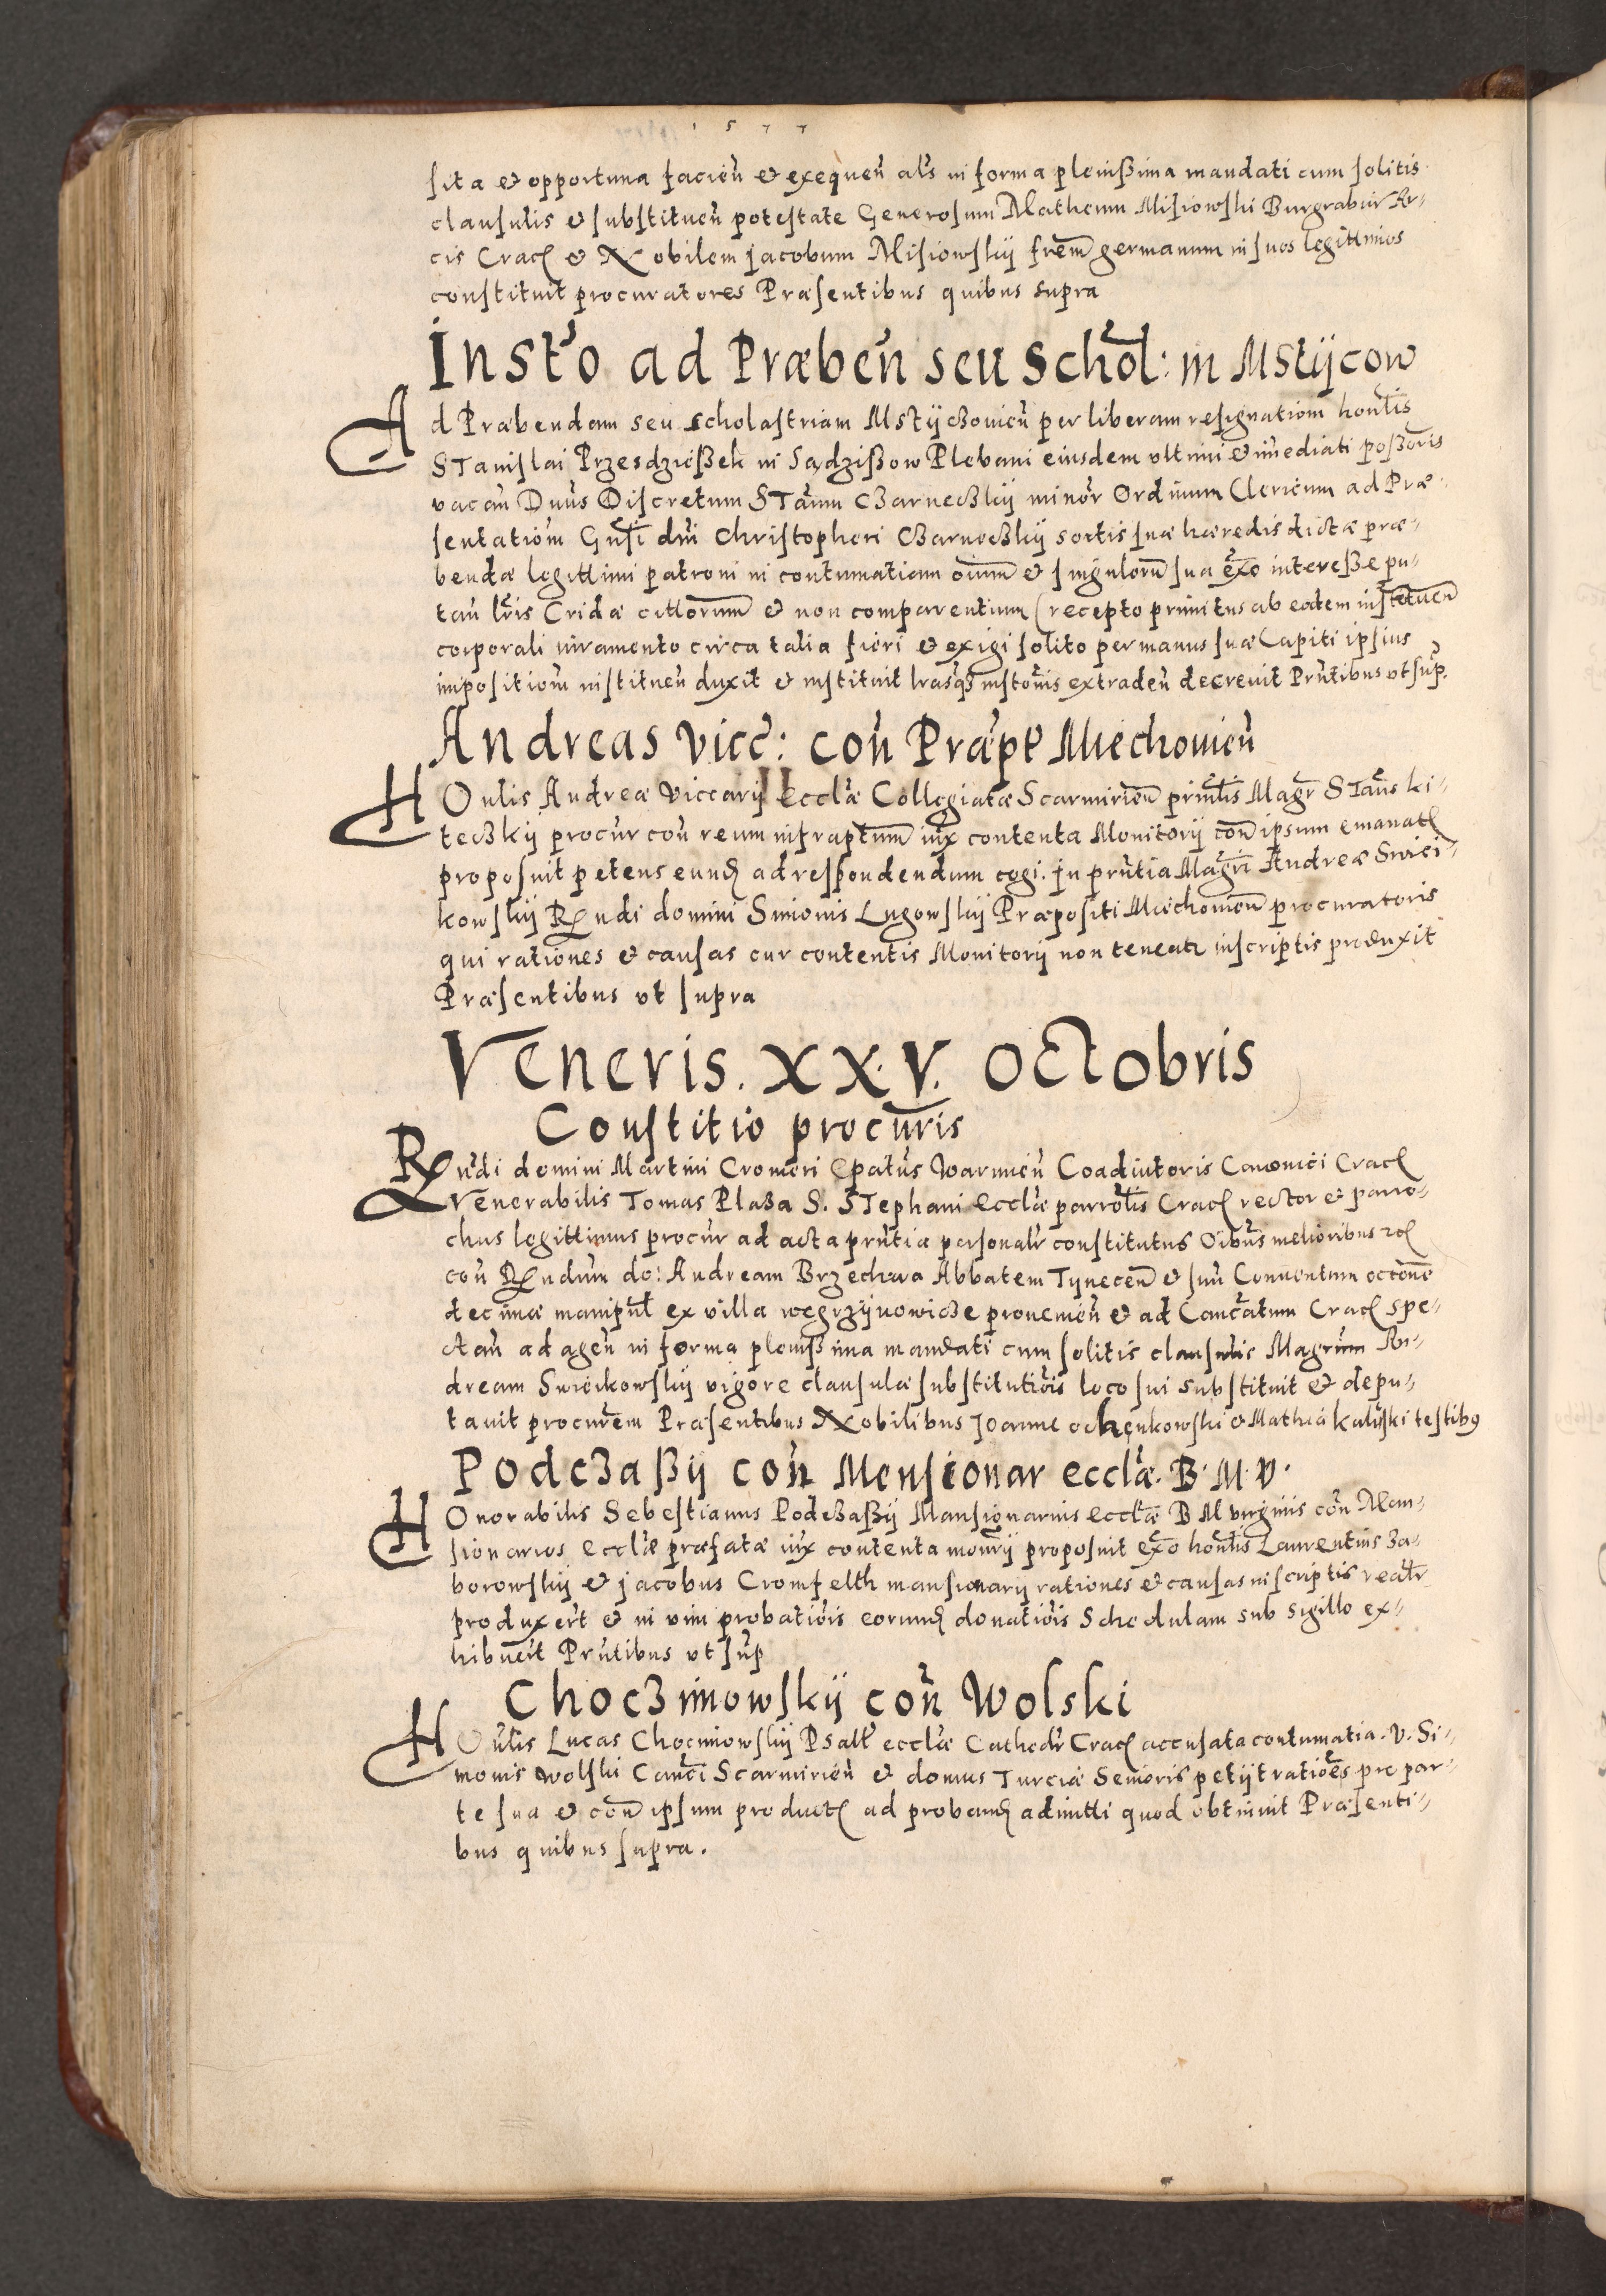 1577
sita et opportuna facien̄ et exequen̄ als in forma plenissima mandati cum solitis
clausulis et substituen̄ potestate Generosum Matheum Misiowski Burgrabiū Ar-
cis Crac̄ et Nobilem Jacobum Misiowskij frēm germanum in suos legittimos
constituit procuratores Præsentibus quibus supra
Instō ad Præben̄ seu Schol: in Mstijcow
Ad Præbendam seu scholastriam Mstijczovien̄ per liberam resignatiom̄ honlis
Stanislai Przesdzieszek in Sądziszow Plebani eiusdem vltimi et im̄ediati possoris
vacan̄ Dn̄us Discretum Stānn Czarneczkij minor̄ Ordinum Clericum ad Præ-
sentatiom̄ Gn̄si dn̄i Christopheri Czarneczkij sortis suæ hæredis dictæ præ-
bendæ legittimi patroni in contumatiam oīum et singulorū sua exō interesse pu-
tan̄ lris Cridæ cittorum et non comparentium (recepto primitus ab eodem instituen̄
corporali iuramento circa talia fieri et exigi solito per manus suæ Capiti ipsius
impositiom̄ instituen̄ duxit et instituit lrasq̄ instōnis extraden̄ decrevit Prn̄tibus vt sup.
Andreas vicc: con̄ Præpt Miechovien̄
Honlis Andreæ viccarij Ecclæ Collegiatæ Scarmirien̄ prin̄lis Magr̄ Stan̄s ki-
teczkij procur̄ con̄ reum infraptum̄ iux̄ contenta Monitorij con̄ ipsum emanat̄
proposuit petens eund̄ ad respondendum cogi. in prn̄tia Magr̄i Andreæ Swiei-
kowskij Rn̄di domini Simonis Lugowskij Præpositi Miechovien̄ procuratoris
qui rationes et causas cur contentis Monitorij non teneatr inscriptis produxit
Præsentibus vt supra
Veneris. XX.V. Octobris
Constitio procur̄is
Rn̄di domini Martini Cromeri Epatus Warmien̄ Coadiutoris Canonici Crac̄
Venerabilis Tomas Plaza S. Stephani Ecclæ parrolis Crac̄ rector et parro-
chus legittimus procur̄ ad acta prn̄tia personalr̄ constitutus Oībus melioribus etc̄
con̄ Rn̄dum do: Andream Brzechwa Abbatem Tynecen̄ et suū Conventum occōne
decimæ manipul̄ ex villa wegrzijnowicze provenien̄ et ad Canc̄atum Crac̄ spe-
ctan̄ ad agen̄ in forma plenissima mandati cum solitis clausulis Magrum An-
dream Swieikowskij vigore clausulæ substitutiōis loco sui substituit et depu-
tavit procur̄em Præsentibus Nobilibus Joanne ochenkowski et Mathiā kaliński testibq
Podczaszij con̄ Mensionar ecclæ. B. M. V.
Honorabilis Sebestianus Podczaszij Mansionarius ecclæ B M virginis con̄ Man-
sionarios ecclæ præfatæ iux̄ contenta monr̄ij proposuit exō honlis Laurentius za-
borowskij et Jacobus Cromfelth mansionarij rationes et causas in scriptis realr̄
produxer̄t et in vim probatiōis eorund̄ donatiōis Schedulam sub sigillo ex-
hibuer̄t Prn̄tibus vt sup
Choczimowskij con̄ Wolski
Honlis Lucas Chocimowskij Psalt̄ ecclæ Cathedr̄ Crac̄ accusata contumatia. V. Si-
monis wolski Canc̄i Scarmirien̄ et domus Turciæ Senioris petijt ratiōes pre par-
te sua et con̄ ipsum product̄ ad proband̄ admitti quod obtinuit Præsenti-
bus quibus supra.